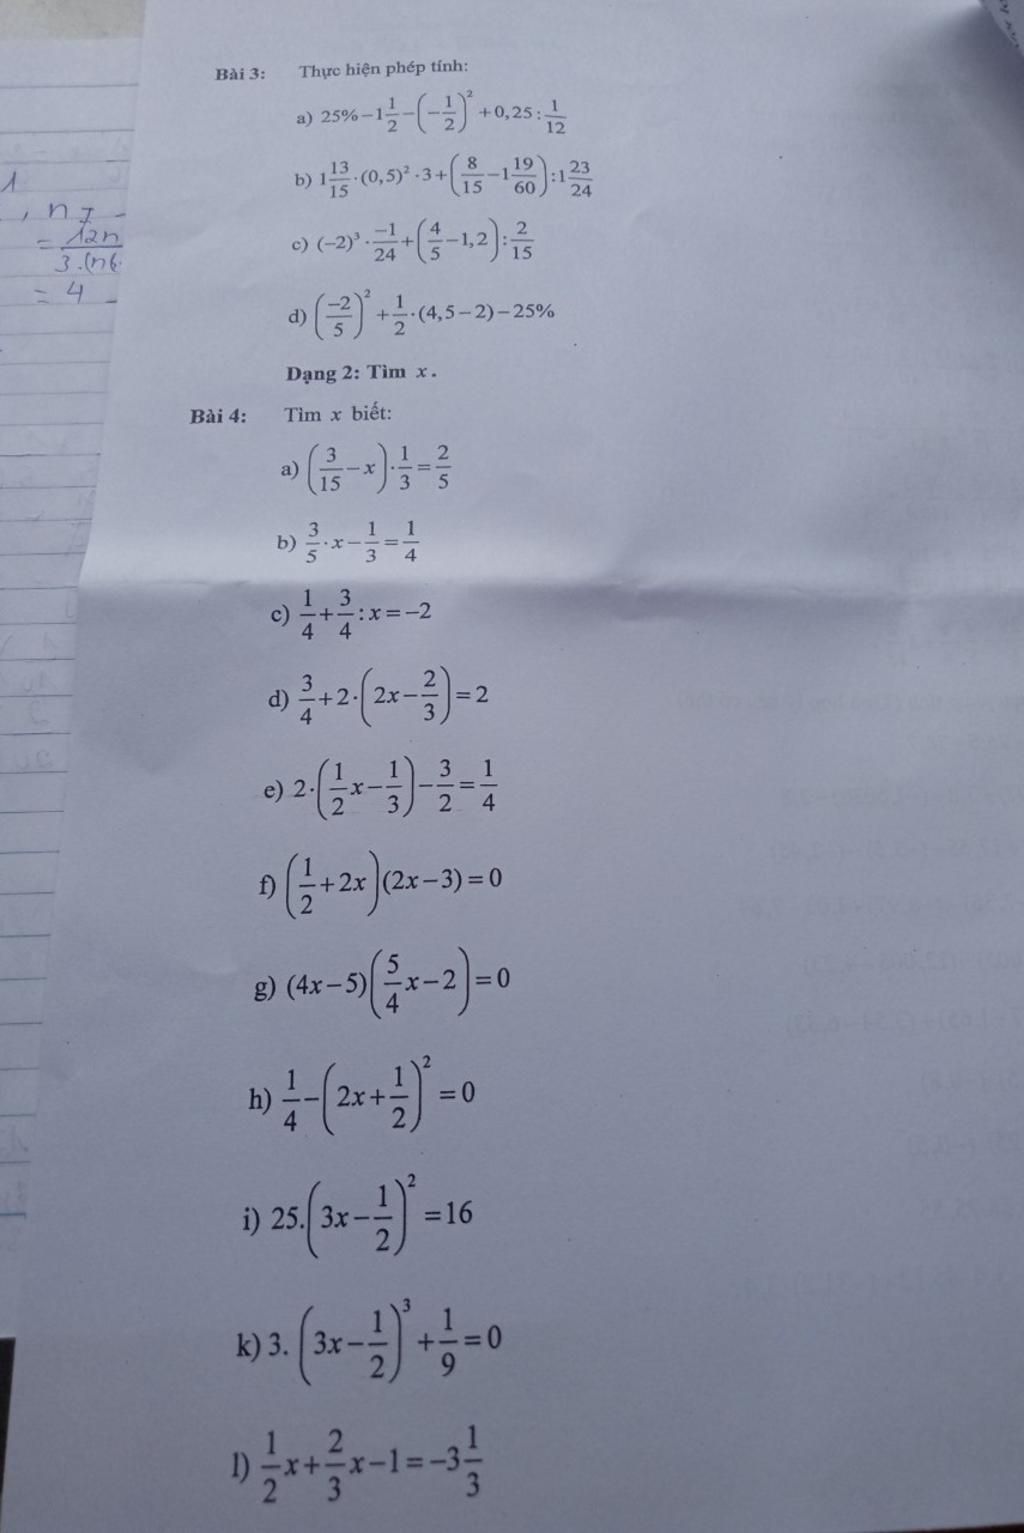 Bài 3: Thực hiện phép tính:
a) 25% − 1 1/2 − (−1/2)² + 0,25 : 1/12
b) 1 13/15 · (0,5)² · 3 + (8/15 − 1 19/60) : 1 23/24
c) (−2)³ · −1/24 + (4/5 − 1,2) : 2/15
d) (−2/5)² + 1/2 · (4,5 − 2) − 25%
Dạng 2: Tìm x.
Bài 4: Tìm x biết:
a) (3/15 − x) · 1/3 = 2/5
b) 3/5 · x − 1/3 = 1/4
c) 1/4 + 3/4 : x = −2
d) 3/4 + 2 · (2x − 2/3) = 2
e) 2 · (1/2 x − 1/3) − 3/2 = 1/4
f) (1/2 + 2x)(2x − 3) = 0
g) (4x − 5)(5/4 x − 2) = 0
h) 1/4 − (2x + 1/2)² = 0
i) 25.(3x − 1/2)² = 16
k) 3. (3x − 1/2)³ + 1/9 = 0
l) 1/2 x + 2/3 x − 1 = −3 1/3
1
= 12n
= 4